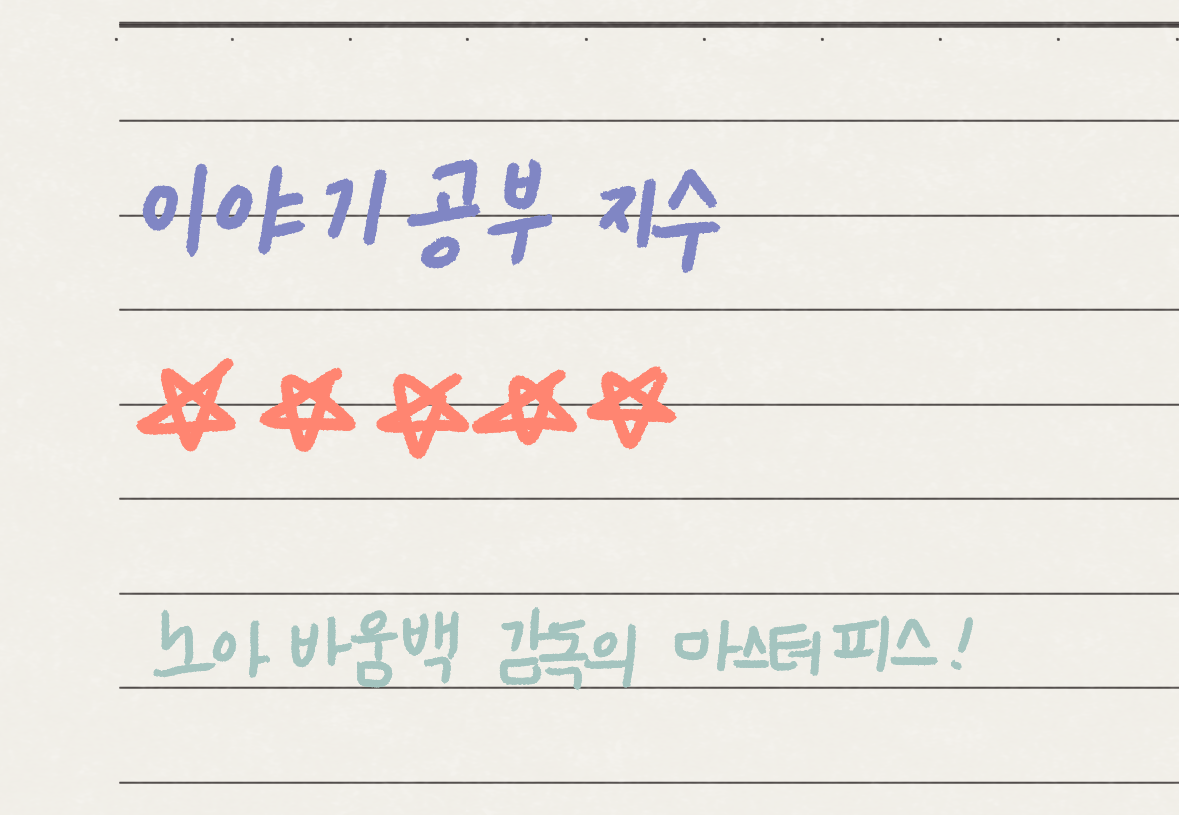 이야기공부 지수
☆☆☆☆☆
노아 바움백 감독의 마스터피스!